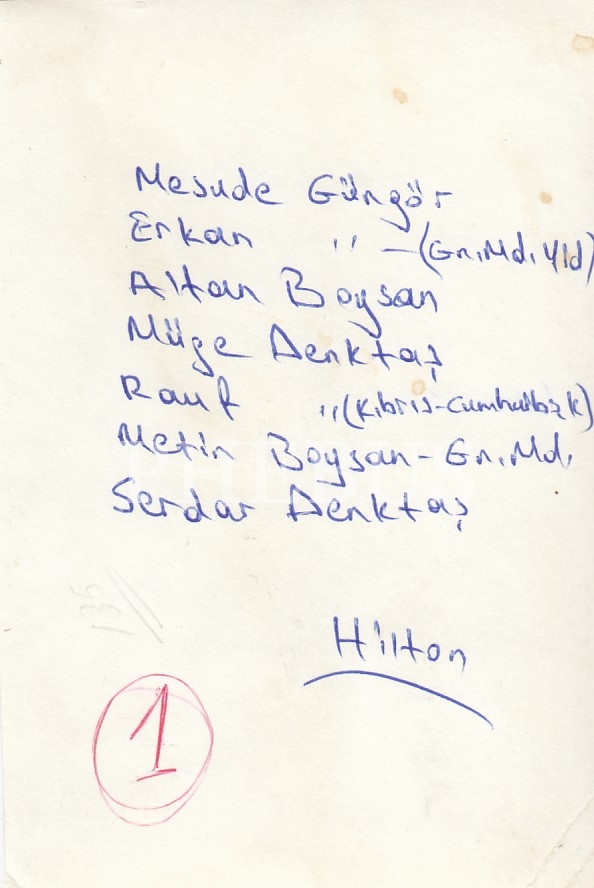 Mesude Güngör
Erkan " —(Gn.Md.Yld)
Altan Boysan
Müge Denktaş
Rauf " (Kıbrıs-Cumhurbşk)
Metin Boysan-Gn.Md.
Serdar Denktaş
Hilton
1